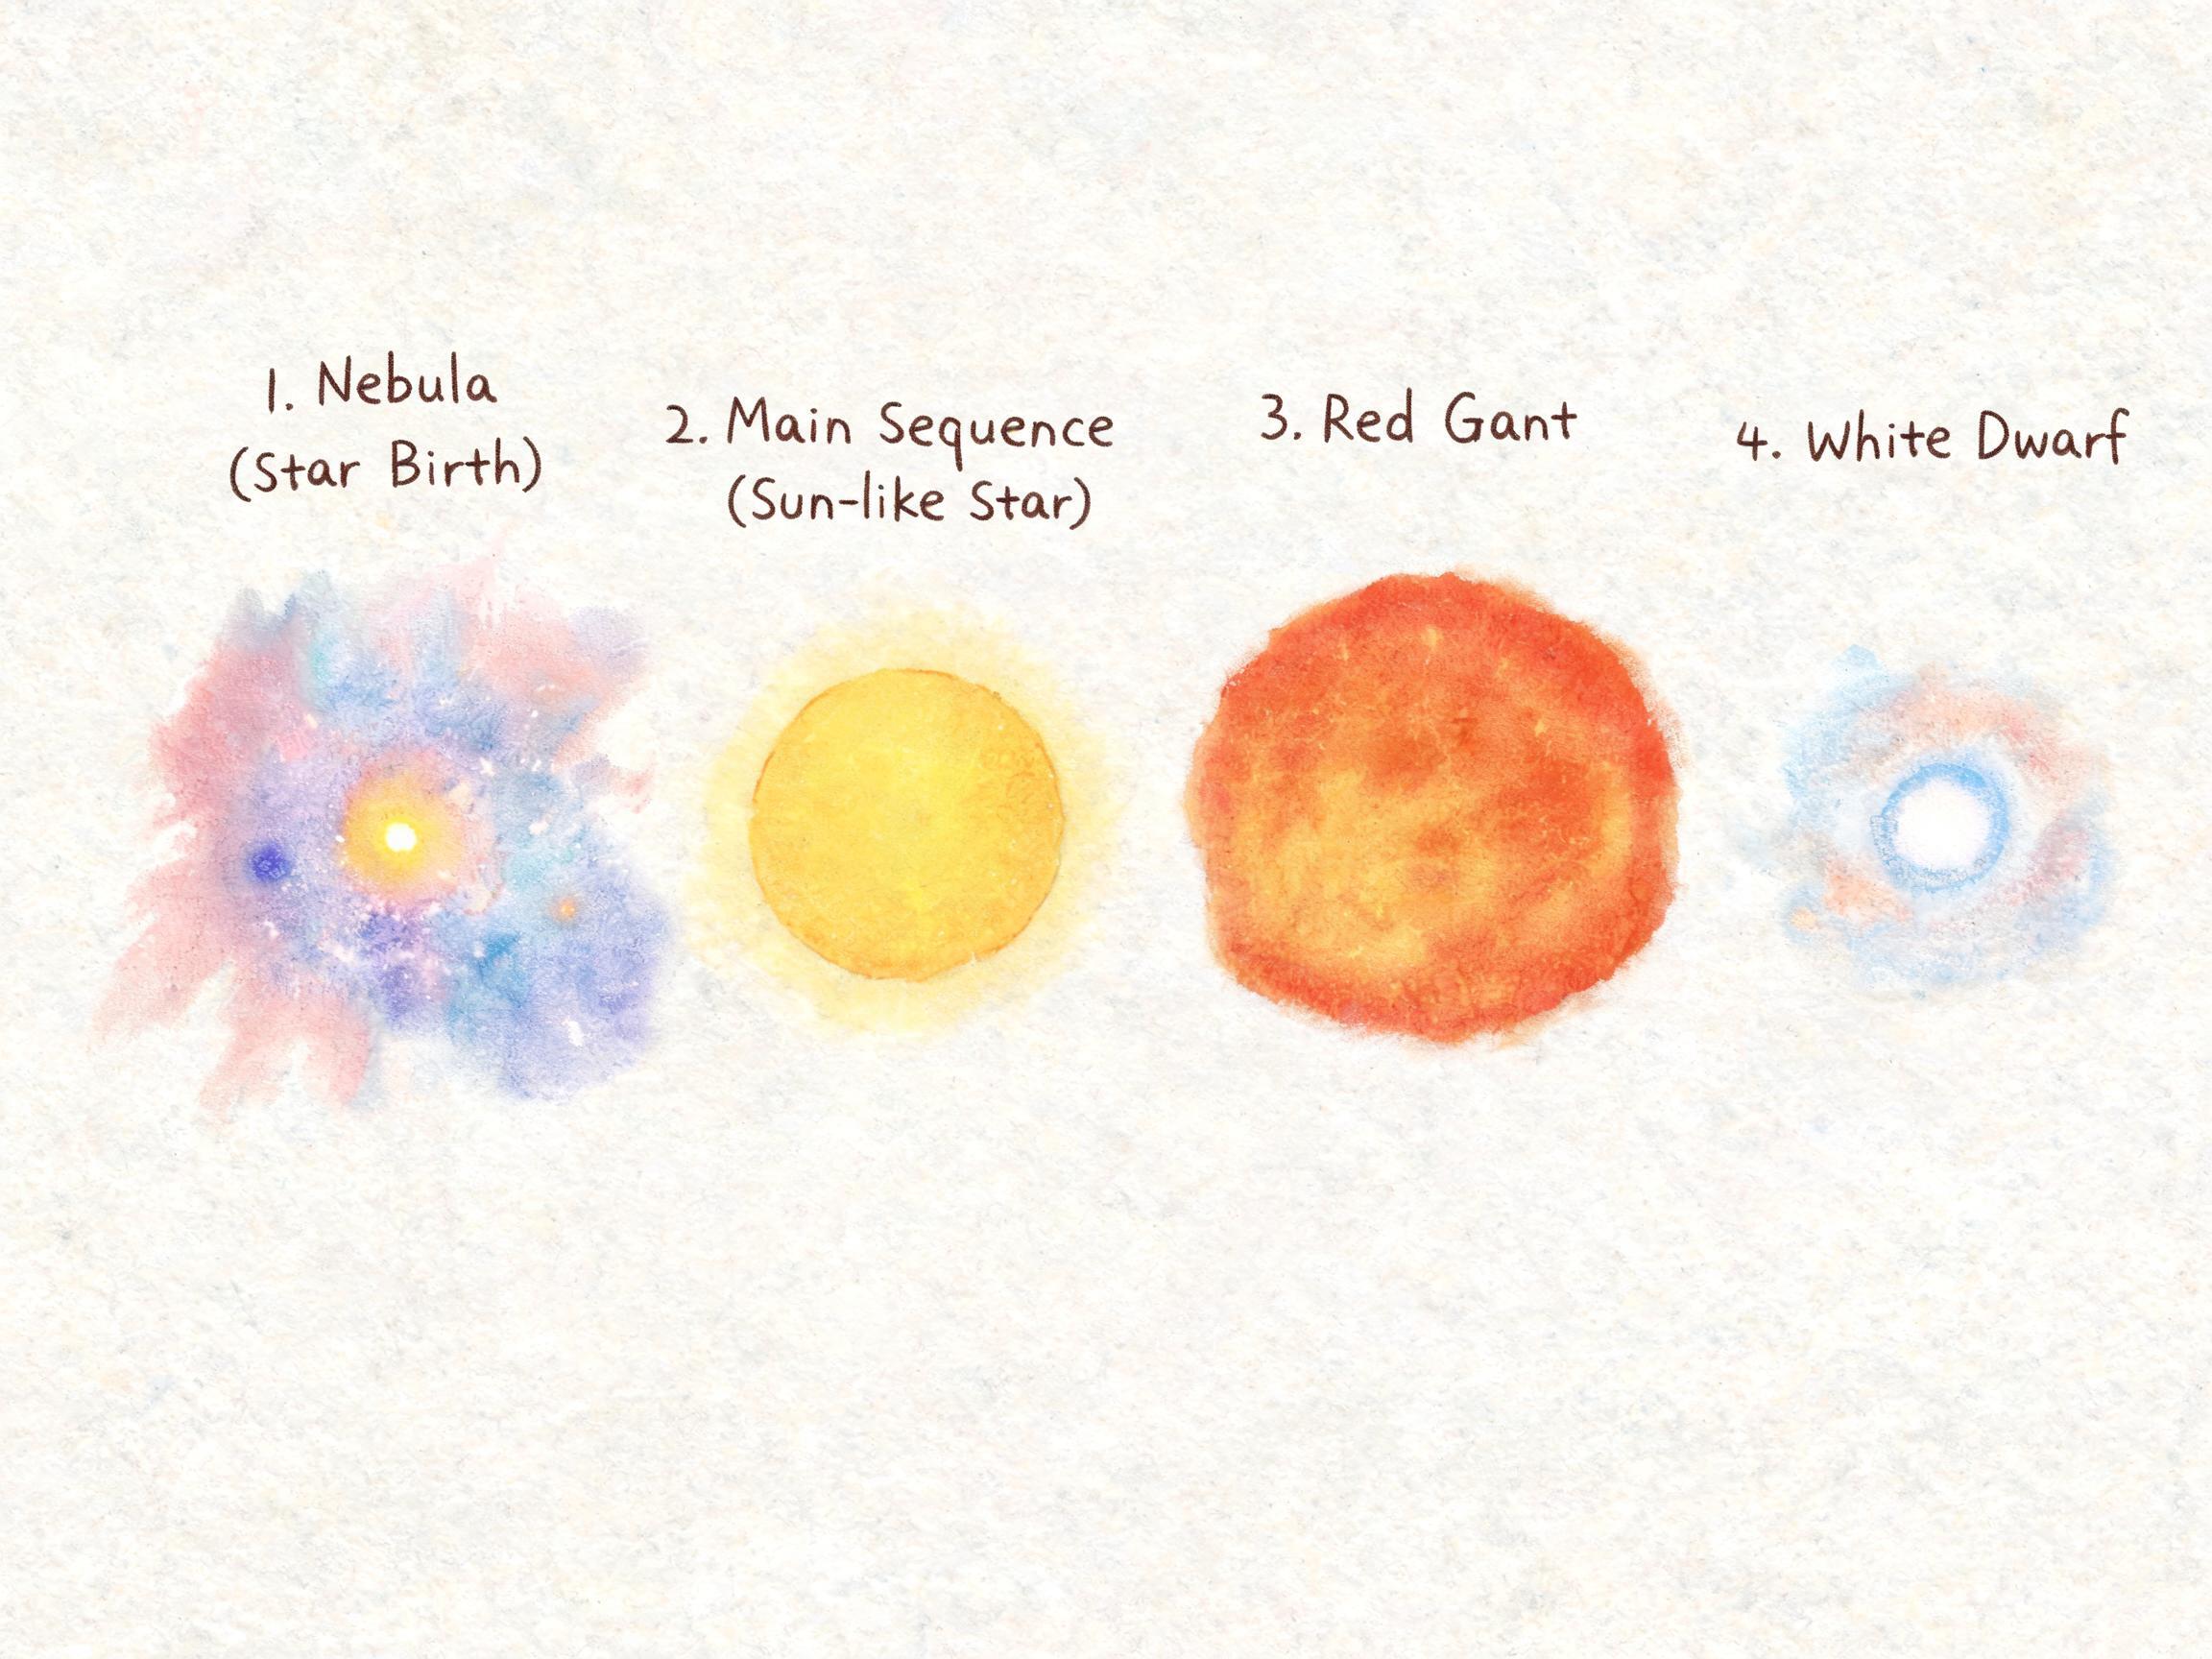 1. Nebula
(Star Birth)
2. Main Sequence
(Sun-like Star)
3. Red Gant
4. White Dwarf